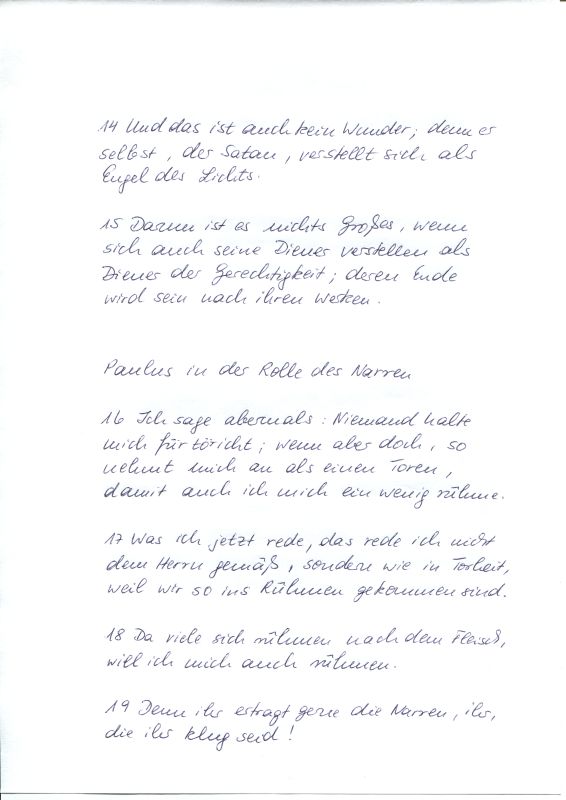 14 Und das ist auch kein Wunder; denn er
selbst, der Satan, verstellt sich als
Engel des Lichts.
15 Darum ist es nichts Großes, wenn
sich auch seine Diener verstellen als
Diener der Gerechtigkeit; deren Ende
wird sein nach ihren Werken.
Paulus in der Rolle des Narren
16 Ich sage abermals: Niemand halte
mich für töricht; wenn aber doch, so
nehmt mich an als einen Toren,
damit auch ich mich ein wenig rühme.
17 Was ich jetzt rede, das rede ich nicht
dem Herrn gemäß, sondern wie in Torheit,
weil wir so ins Rühmen gekommen sind.
18 Da viele sich rühmen nach dem Fleisch,
will ich mich auch rühmen.
19 Denn ihr ertragt gerne die Narren, ihr,
die ihr klug seid!